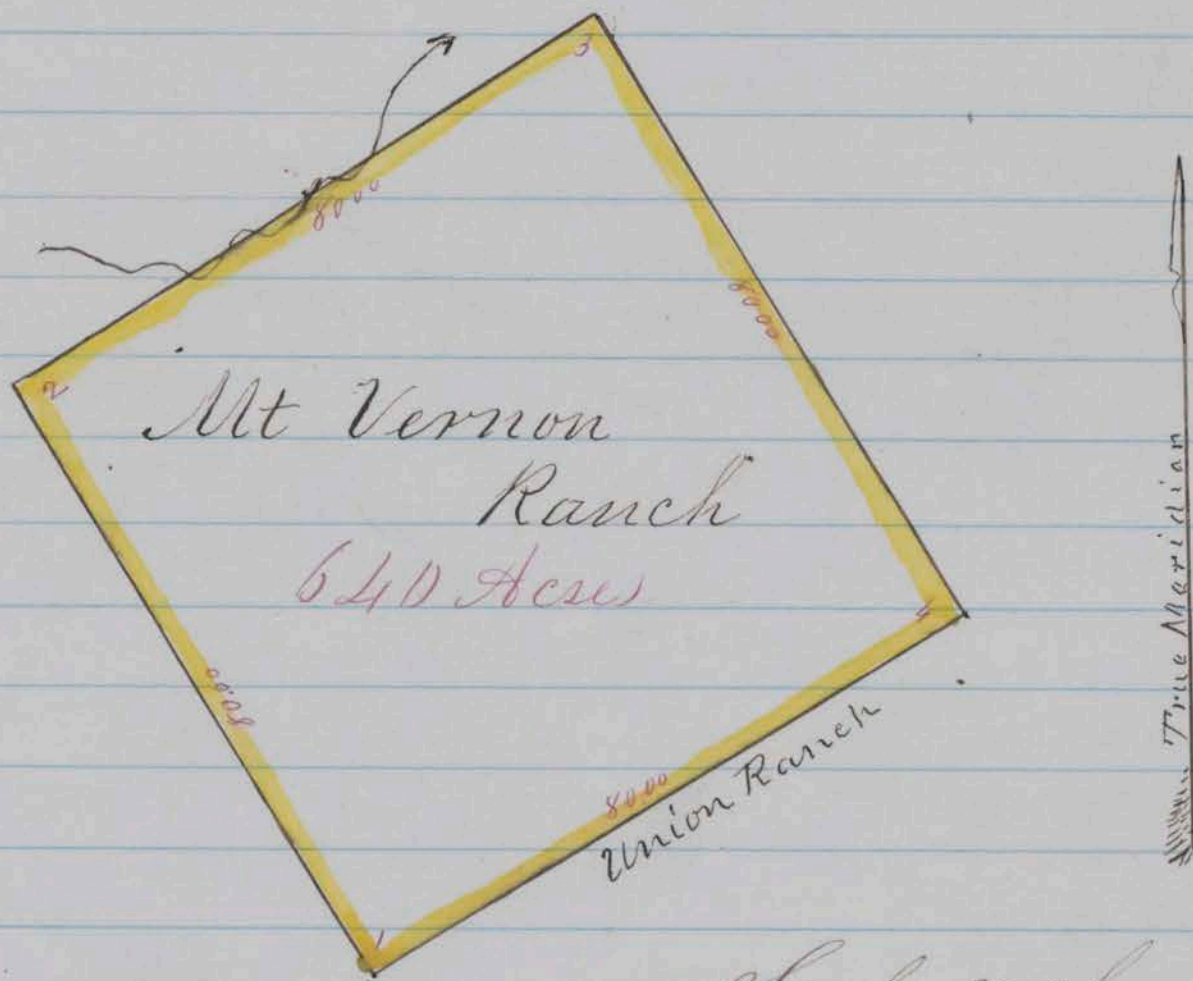 3
80.00
80.00
2
Mt Vernon
Ranch
640 Acres
4
80.00
80.00
Union Ranch
1
True Meridian